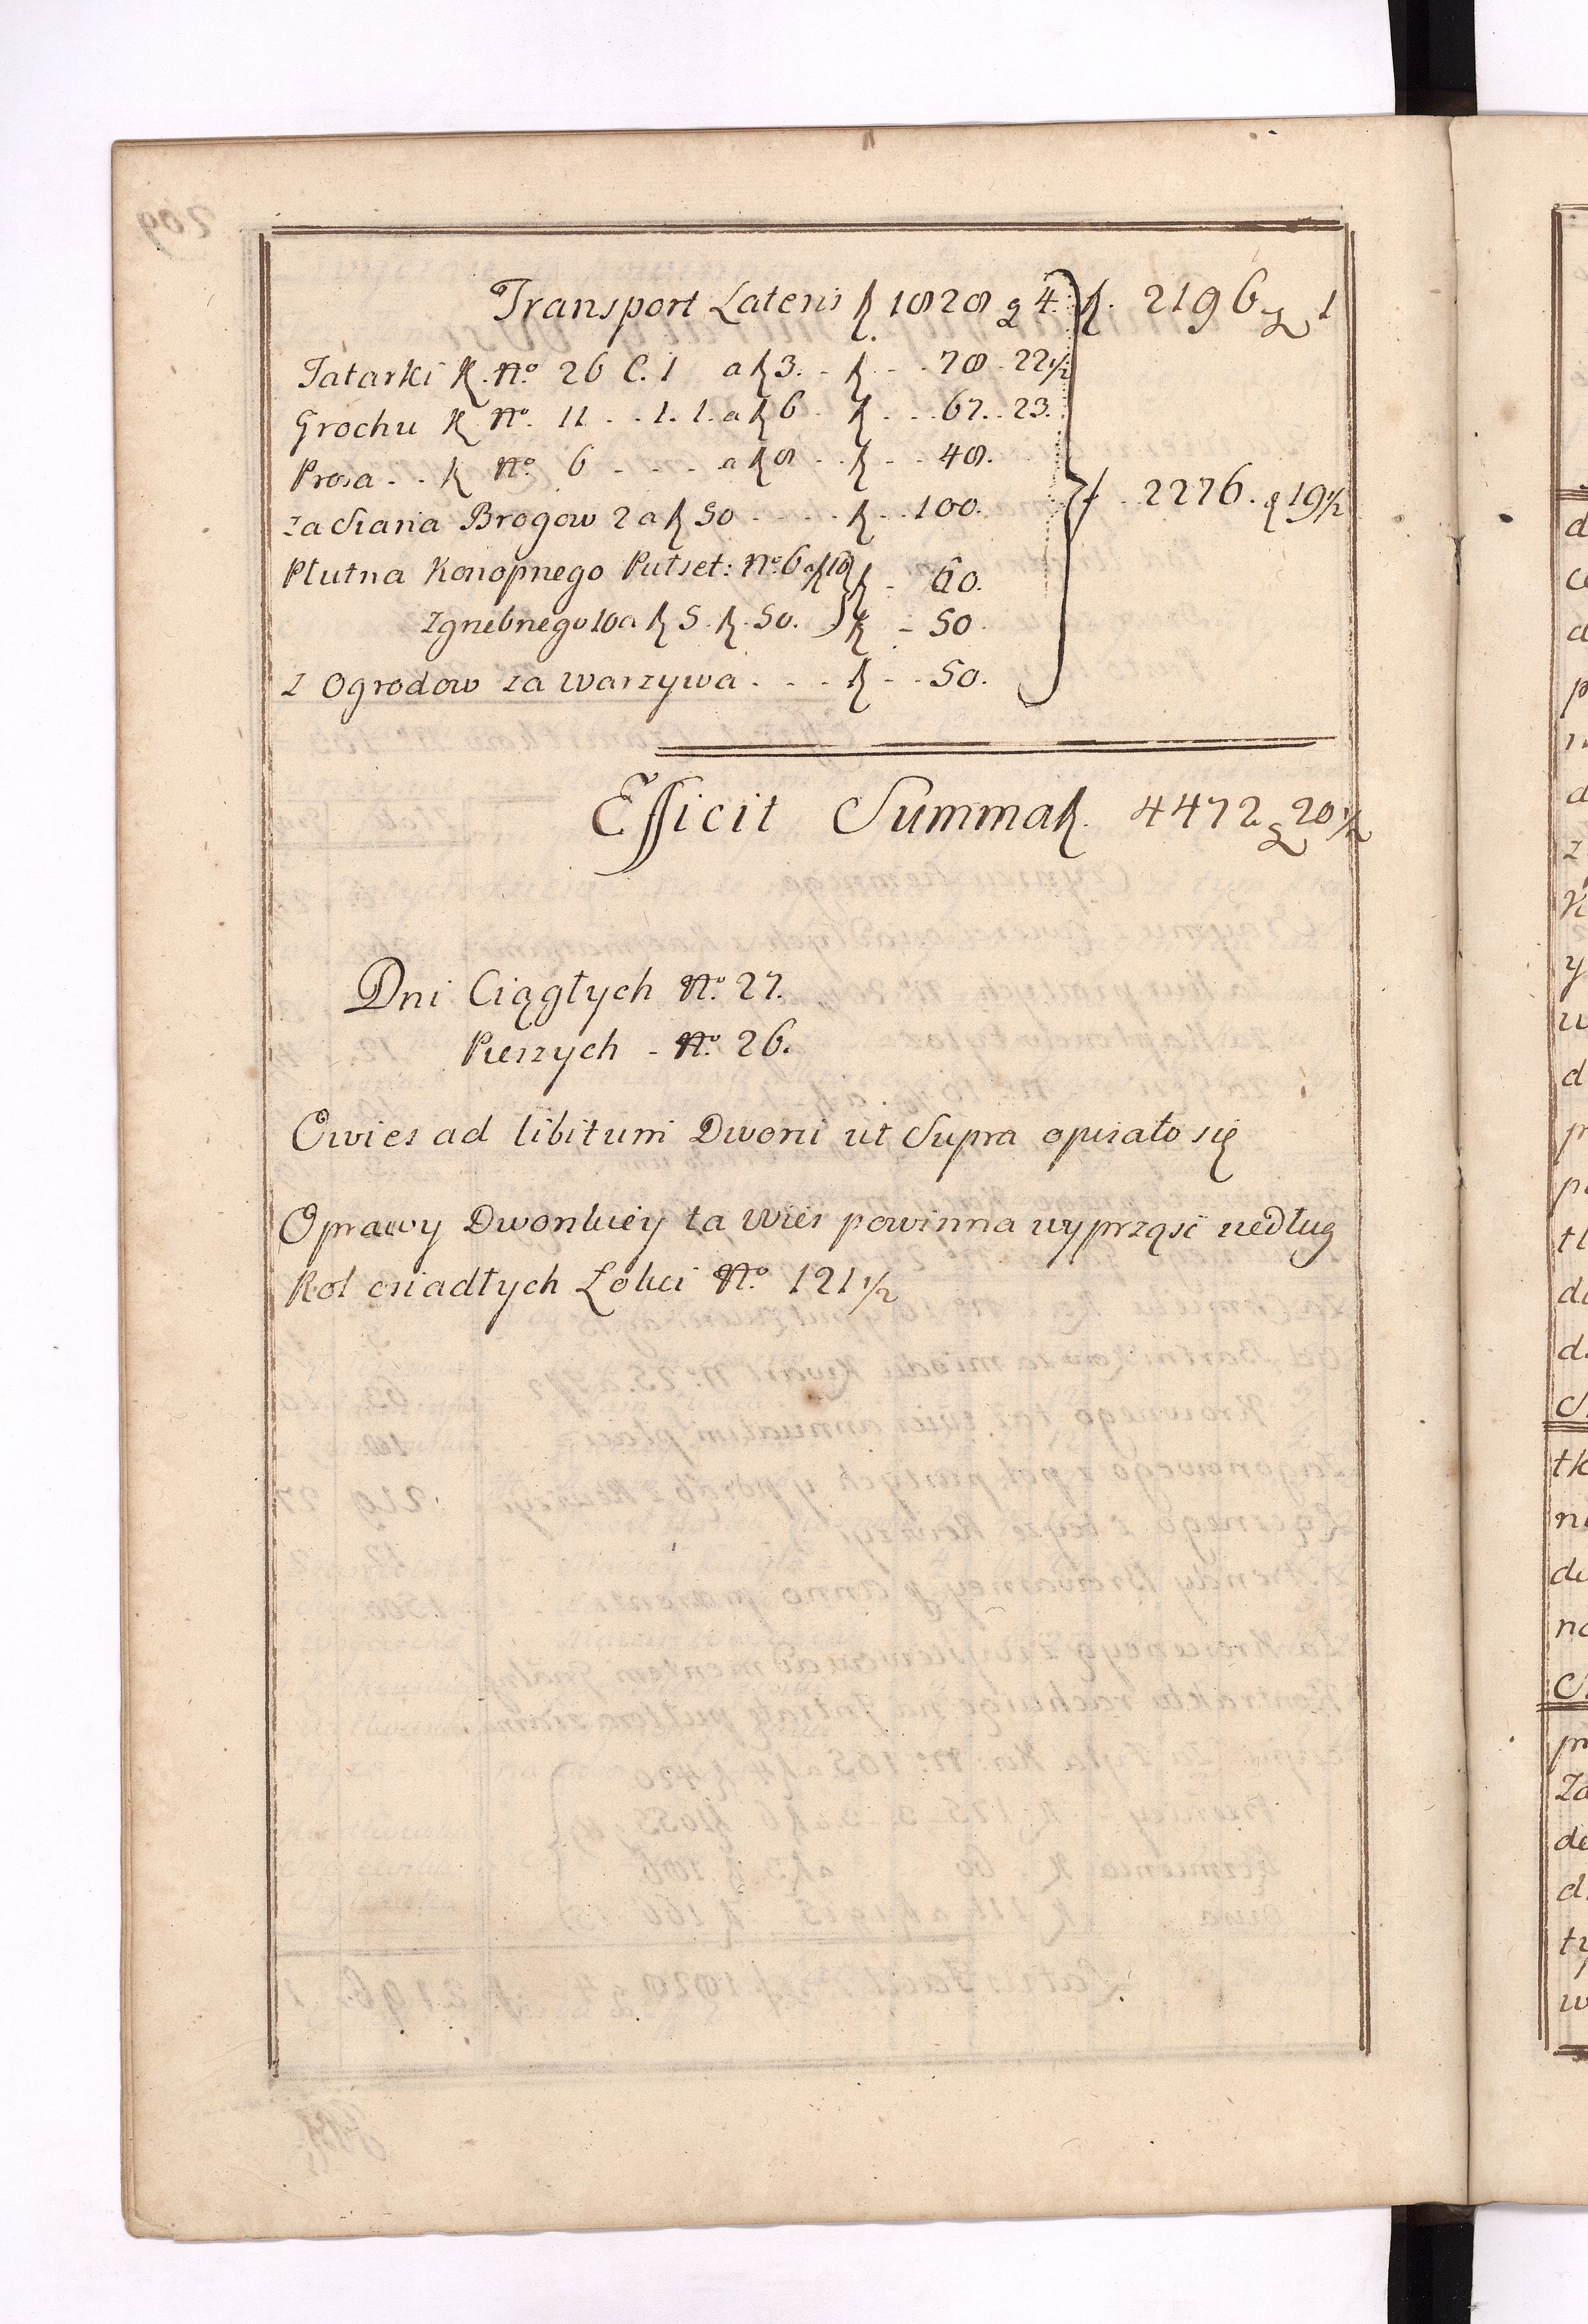 Transport Lateris zł 1828 g 4. zł. 2196 g 1
Tatarki K. No. 26 C. 1 a zł 3. - zł - - 78 - 22 1/2
Grochu K No. 11 - - 1. 1. a zł 6 - zł - - 67. - 23.
Prosa - - K No. 6 - - - a zł 8 - - zł - - 48.
za Siana Brogow 2 a zł 50 - - - - zł - - 100.
zł - 2276. g 19 1/2
Płutna Konopnego Putset: No. 6 a zł 10 zł - 60.
Zgrzebnego 10 a zł 5. zł. 50. zł - 50.
z Ogrodow za warzywa - - - zł - - 50.
Efficit Summa zł. 4472 g 20 1/2
Dni Ciągłych No. 27.
Pieszych - No. 26.
Owies ad libitum Dworu ut Supra opisało się
Oprawy Dworskiey ta wies powinna wyprząść według
Rol osiadłych Łokci No. 121 1/2